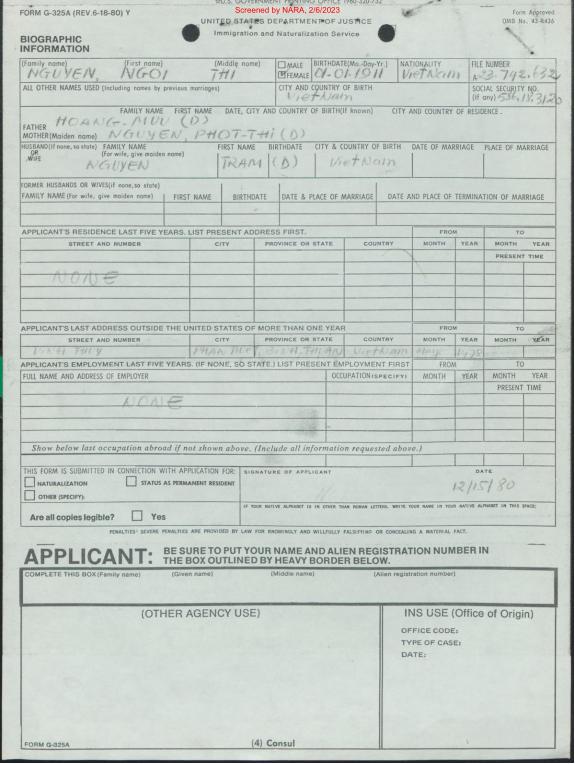 U.S. GOVERNMENT PRINTING OFFICE 1980-320-732
Screened by NARA, 2/6/2023
FORM G-325A (REV.6-18-80) Y
UNITED STATES DEPARTMENT OF JUSTICE
Form Approved
OMB No. 43-R436
Immigration and Naturalization Service
BIOGRAPHIC
INFORMATION
(Family name) (First name) (Middle name) MALE BIRTHDATE(Mo.-Day-Yr.) NATIONALITY FILE NUMBER
NGUYEN, NGOI THI FEMALE 01-01-1911 VietNam A-23.742.632
ALL OTHER NAMES USED (Including names by previous marriages) CITY AND COUNTRY OF BIRTH SOCIAL SECURITY NO.
VietNam (if any)
FAMILY NAME FIRST NAME DATE, CITY AND COUNTRY OF BIRTH(If known) CITY AND COUNTRY OF RESIDENCE.
FATHER HOANG-MUU (D)
MOTHER(Maiden name) NGUYEN, PHOT-THI (D)
HUSBAND(If none, so state) OR WIFE FAMILY NAME (For wife, give maiden name) FIRST NAME BIRTHDATE CITY & COUNTRY OF BIRTH DATE OF MARRIAGE PLACE OF MARRIAGE
NGUYEN TRAM (D) VietNam
FORMER HUSBANDS OR WIVES(if none,so state)
FAMILY NAME (For wife, give maiden name) FIRST NAME BIRTHDATE DATE & PLACE OF MARRIAGE DATE AND PLACE OF TERMINATION OF MARRIAGE
APPLICANT'S RESIDENCE LAST FIVE YEARS. LIST PRESENT ADDRESS FIRST. FROM TO
STREET AND NUMBER CITY PROVINCE OR STATE COUNTRY MONTH YEAR MONTH YEAR
PRESENT TIME
NONE
APPLICANT'S LAST ADDRESS OUTSIDE THE UNITED STATES OF MORE THAN ONE YEAR FROM TO
STREET AND NUMBER CITY PROVINCE OR STATE COUNTRY MONTH YEAR MONTH YEAR
VietNam
APPLICANT'S EMPLOYMENT LAST FIVE YEARS. (IF NONE, SO STATE.) LIST PRESENT EMPLOYMENT FIRST FROM TO
FULL NAME AND ADDRESS OF EMPLOYER OCCUPATION(SPECIFY) MONTH YEAR MONTH YEAR
PRESENT TIME
NONE
Show below last occupation abroad if not shown above. (Include all information requested above.)
THIS FORM IS SUBMITTED IN CONNECTION WITH APPLICATION FOR: SIGNATURE OF APPLICANT DATE
NATURALIZATION STATUS AS PERMANENT RESIDENT
OTHER (SPECIFY):
12/15/80
Are all copies legible? Yes
IF YOUR NATIVE ALPHABET IS IN OTHER THAN ROMAN LETTERS, WRITE YOUR NAME IN YOUR NATIVE ALPHABET IN THIS SPACE:
PENALTIES: SEVERE PENALTIES ARE PROVIDED BY LAW FOR KNOWINGLY AND WILLFULLY FALSIFYING OR CONCEALING A MATERIAL FACT.
APPLICANT: BE SURE TO PUT YOUR NAME AND ALIEN REGISTRATION NUMBER IN
THE BOX OUTLINED BY HEAVY BORDER BELOW.
COMPLETE THIS BOX (Family name) (Given name) (Middle name) (Alien registration number)
(OTHER AGENCY USE) INS USE (Office of Origin)
OFFICE CODE:
TYPE OF CASE:
DATE:
FORM G-325A (4) Consul